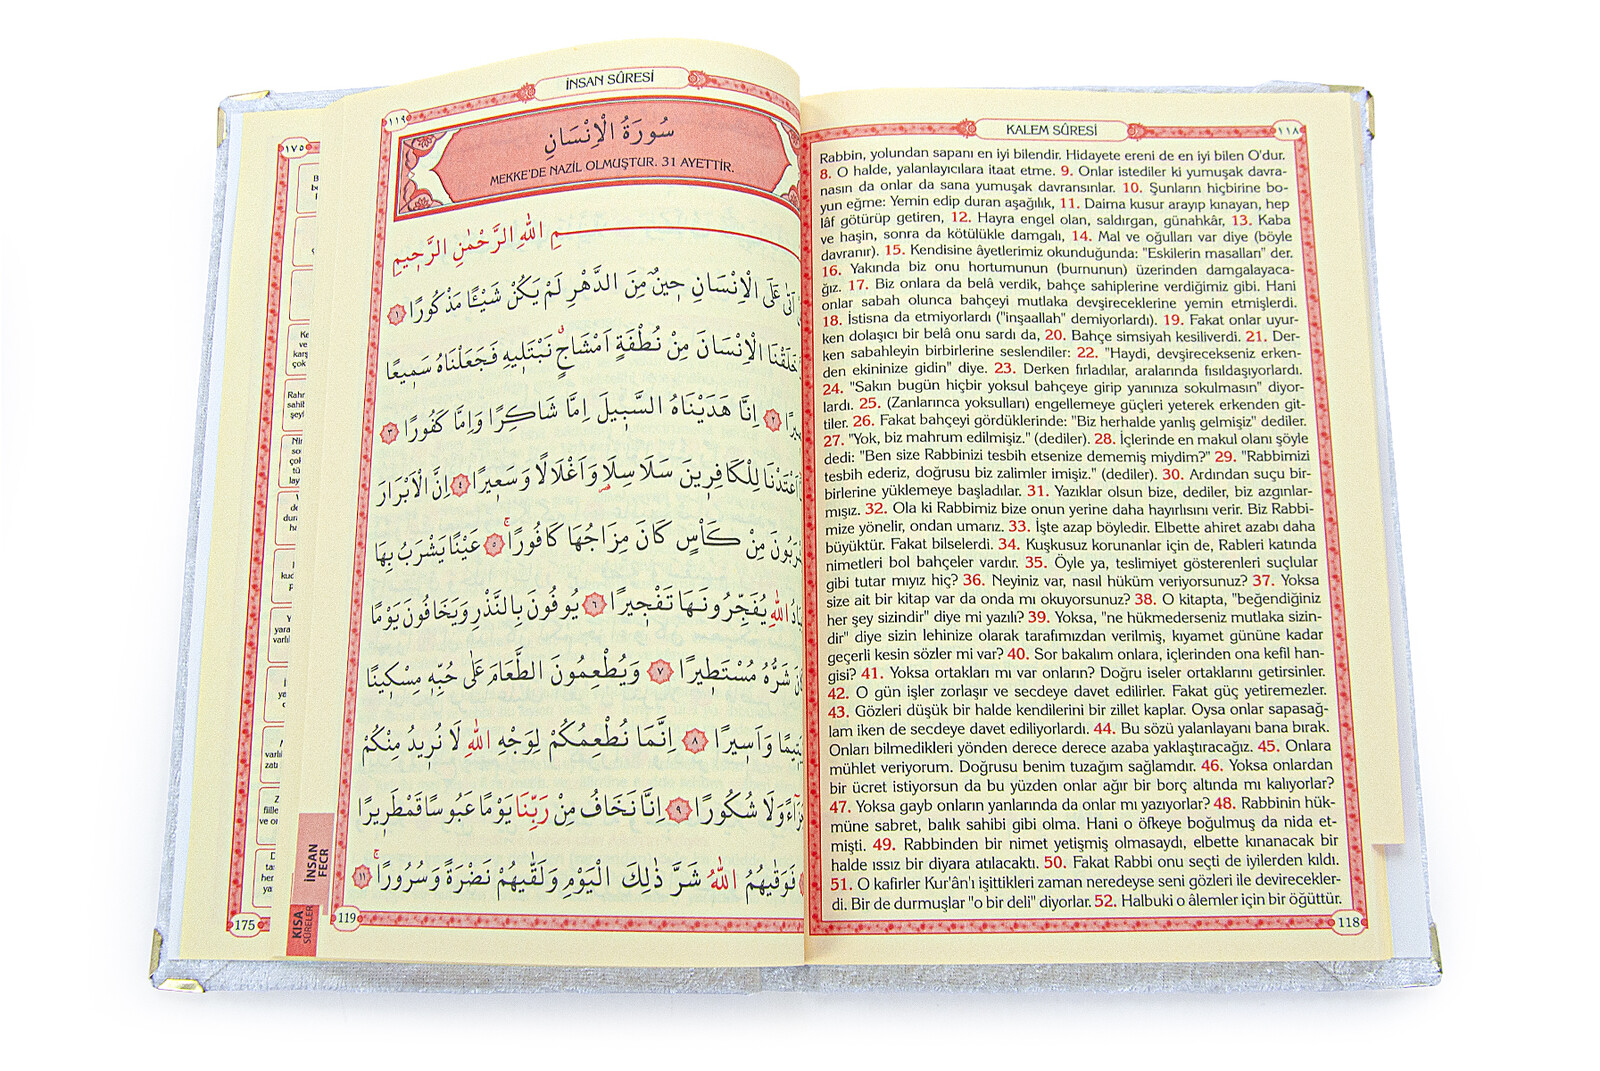 KALEM SÛRESİ
١١٨
Rabbin, yolundan sapanı en iyi bilendir. Hidayete ereni de en iyi bilen O'dur.
8. O halde, yalanlayıcılara itaat etme. 9. Onlar istediler ki yumuşak davra-
nasın da onlar da sana yumuşak davransınlar. 10. Şunların hiçbirine bo-
yun eğme: Yemin edip duran aşağılık, 11. Daima kusur arayıp kınayan, hep
lâf götürüp getiren, 12. Hayra engel olan, saldırgan, günahkâr, 13. Kaba
ve haşin, sonra da kötülükle damgalı, 14. Mal ve oğulları var diye (böyle
davranır). 15. Kendisine âyetlerimiz okunduğunda: "Eskilerin masalları" der.
16. Yakında biz onu hortumunun (burnunun) üzerinden damgalayaca-
ğız. 17. Biz onlara da belâ verdik, bahçe sahiplerine verdiğimiz gibi. Hani
onlar sabah olunca bahçeyi mutlaka devşireceklerine yemin etmişlerdi.
18. İstisna da etmiyorlardı ("inşaallah" demiyorlardı). 19. Fakat onlar uyur-
ken dolaşıcı bir belâ onu sardı da, 20. Bahçe simsiyah kesiliverdi. 21. Der-
ken sabahleyin birbirlerine seslendiler: 22. "Haydi, devşirecekseniz erken-
den ekininize gidin" diye. 23. Derken fırladılar, aralarında fısıldaşıyorlardı.
24. "Sakın bugün hiçbir yoksul bahçeye girip yanınıza sokulmasın" diyor-
lardı. 25. (Zanlarınca yoksulları) engellemeye güçleri yeterek erkenden git-
tiler. 26. Fakat bahçeyi gördüklerinde: "Biz herhalde yanlış gelmişiz" dediler.
27. "Yok, biz mahrum edilmişiz." (dediler). 28. İçlerinde en makul olanı şöyle
dedi: "Ben size Rabbinizi tesbih etsenize dememiş miydim?" 29. "Rabbimizi
tesbih ederiz, doğrusu biz zalimler imişiz." (dediler). 30. Ardından suçu bir-
birlerine yüklemeye başladılar. 31. Yazıklar olsun bize, dediler, biz azgınlar-
mışız. 32. Ola ki Rabbimiz bize onun yerine daha hayırlısını verir. Biz Rabbi-
mize yönelir, ondan umarız. 33. İşte azap böyledir. Elbette ahiret azabı daha
büyüktür. Fakat bilselerdi. 34. Kuşkusuz korunanlar için de, Rableri katında
nimetleri bol bahçeler vardır. 35. Öyle ya, teslimiyet gösterenleri suçlular
gibi tutar mıyız hiç? 36. Neyiniz var, nasıl hüküm veriyorsunuz? 37. Yoksa
size ait bir kitap var da onda mı okuyorsunuz? 38. O kitapta, "beğendiğiniz
her şey sizindir" diye mi yazılı? 39. Yoksa, "ne hükmederseniz mutlaka sizin-
dir" diye sizin lehinize olarak tarafımızdan verilmiş, kıyamet gününe kadar
geçerli kesin sözler mi var? 40. Sor bakalım onlara, içlerinden ona kefil han-
gisi? 41. Yoksa ortakları mı var onların? Doğru iseler ortaklarını getirsinler.
42. O gün işler zorlaşır ve secdeye davet edilirler. Fakat güç yetiremezler.
43. Gözleri düşük bir halde kendilerini bir zillet kaplar. Oysa onlar sapasağ-
lam iken de secdeye davet ediliyorlardı. 44. Bu sözü yalanlayanı bana bırak.
Onları bilmedikleri yönden derece derece azaba yaklaştıracağız. 45. Onlara
mühlet veriyorum. Doğrusu benim tuzağım sağlamdır. 46. Yoksa onlardan
bir ücret istiyorsun da bu yüzden onlar ağır bir borç altında mı kalıyorlar?
47. Yoksa gayb onların yanlarında da onlar mı yazıyorlar? 48. Rabbinin hük-
müne sabret, balık sahibi gibi olma. Hani o öfkeye boğulmuş da nida et-
mişti. 49. Rabbinden bir nimet yetişmiş olmasaydı, elbette kınanacak bir
halde ıssız bir diyara atılacaktı. 50. Fakat Rabbi onu seçti de iyilerden kıldı.
51. O kafirler Kur'ân'ı işittikleri zaman neredeyse seni gözleri ile devirecekler-
di. Bir de durmuşlar "o bir deli" diyorlar. 52. Halbuki o âlemler için bir öğüttür.
118
İNSAN SÛRESİ
١١٩
سُورَةُ الْاِنْسَانِ
MEKKE'DE NAZİL OLMUŞTUR. 31 AYETTİR.
مِ اللّٰهِ الرَّحْمٰنِ الرَّحِيمِ
اَتٰى عَلَى الْاِنْسَانِ حِينٌ مِنَ الدَّهْرِ لَمْ يَكُنْ شَيْـًٔا مَذْكُورًا ١
خَلَقْنَا الْاِنْسَانَ مِنْ نُطْفَةٍ اَمْشَاجٍ نَبْتَلِيهِ فَجَعَلْنَاهُ سَمِيعًا
٢ اِنَّا هَدَيْنَاهُ السَّبِيلَ اِمَّا شَاكِرًا وَاِمَّا كَفُورًا ٣
اَعْتَدْنَا لِلْكَافِرِينَ سَلَاسِلَا وَاَغْلَالًا وَسَعِيرًا ٤ اِنَّ الْاَبْرَارَ
مِنْ كَأْسٍ كَانَ مِزَاجُهَا كَافُورًا ٥ عَيْنًا يَشْرَبُ بِهَا
اللّٰهِ يُفَجِّرُونَهَا تَفْجِيرًا ٦ يُوفُونَ بِالنَّذْرِ وَيَخَافُونَ يَوْمًا
شَرُّهُ مُسْتَطِيرًا ٧ وَيُطْعِمُونَ الطَّعَامَ عَلٰى حُبِّهِ مِسْكِينًا
وَاَسِيرًا ٨ اِنَّمَا نُطْعِمُكُمْ لِوَجْهِ اللّٰهِ لَا نُرِيدُ مِنْكُمْ
وَلَا شُكُورًا ٩ اِنَّا نَخَافُ مِنْ رَبِّنَا يَوْمًا عَبُوسًا قَمْطَرِيرًا
فَوَقٰيهُمُ اللّٰهُ شَرَّ ذٰلِكَ الْيَوْمِ وَلَقّٰيهُمْ نَضْرَةً وَسُرُورًا ١١
119
İNSAN
FECR
KISA
SÛRELER
١٧٥
175